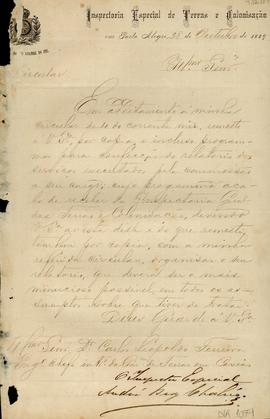 Inspectoria Especial de Terras e Colonisação
em Porto Alegre, 28 de Outubro de 1889
Circular
Illmo. Senr.
Em additamento á minha
circular de do corrente mez, remetto
a V. Sa. por copia, o incluso program-
ma para confecção do relatorio dos
serviços executados pela commissão
a seu cargo, cujo programma aca-
bo de receber da Inspectoria Geral
das Terras e Colonisação, devendo
V. Sa. á vista delle e do que remetti,
tambem por copia, com a minha
referida circular, organisar o seu
relatorio, que deverá ser o mais
minucioso possivel, em todos os as-
sumptos sobre que tiver de tratar.
Deus Guarde a V. Sa.
Illmo. Senr. Dr. Carlos Leopoldo
Engo. Chefe da de Terras em Caxias
O Inspector Especial